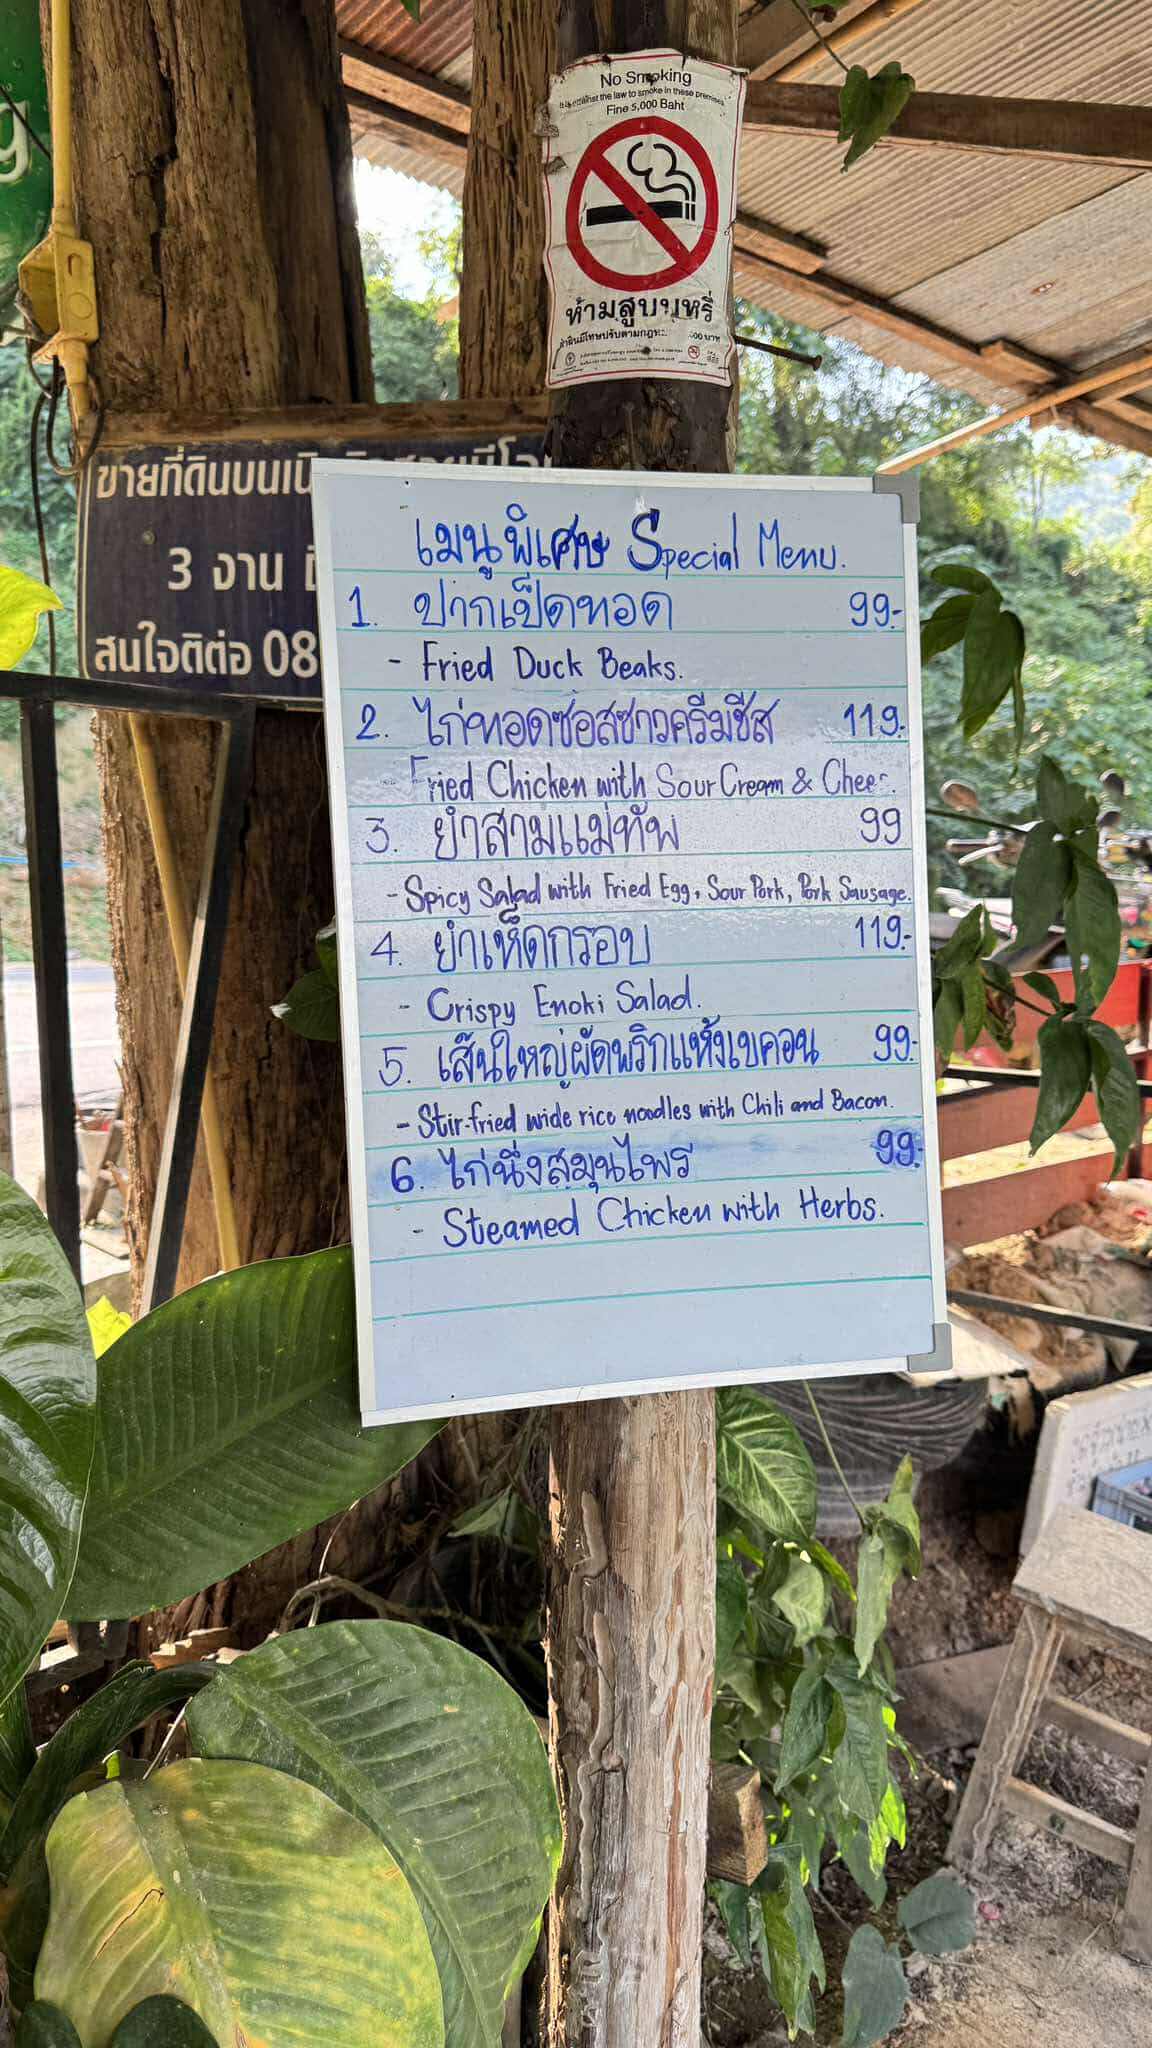 No Smoking
It is against the law to smoke in these premises
Fine 5,000 Baht
ห้ามสูบบุหรี่
ขายที่ดินบนเนิน
3 งาน
สนใจติดต่อ 08
เมนูพิเศษ Special Menu.
1. ปากเป็ดทอด 99.-
- Fried Duck Beaks.
2. ไก่ทอดซอสซาวครีมชีส 119.-
- Fried Chicken with Sour Cream & Chee
3. ยำสามแม่ทัพ 99
- Spicy Salad with Fried Egg, Sour Pork, Pork Sausage.
4. ยำเห็ดกรอบ 119.-
- Crispy Enoki Salad.
5. เส้นใหญ่ผัดพริกแห้งเบคอน 99.-
- Stir-fried wide rice noodles with Chili and Bacon.
6. ไก่นึ่งสมุนไพร 99.-
- Steamed Chicken with Herbs.